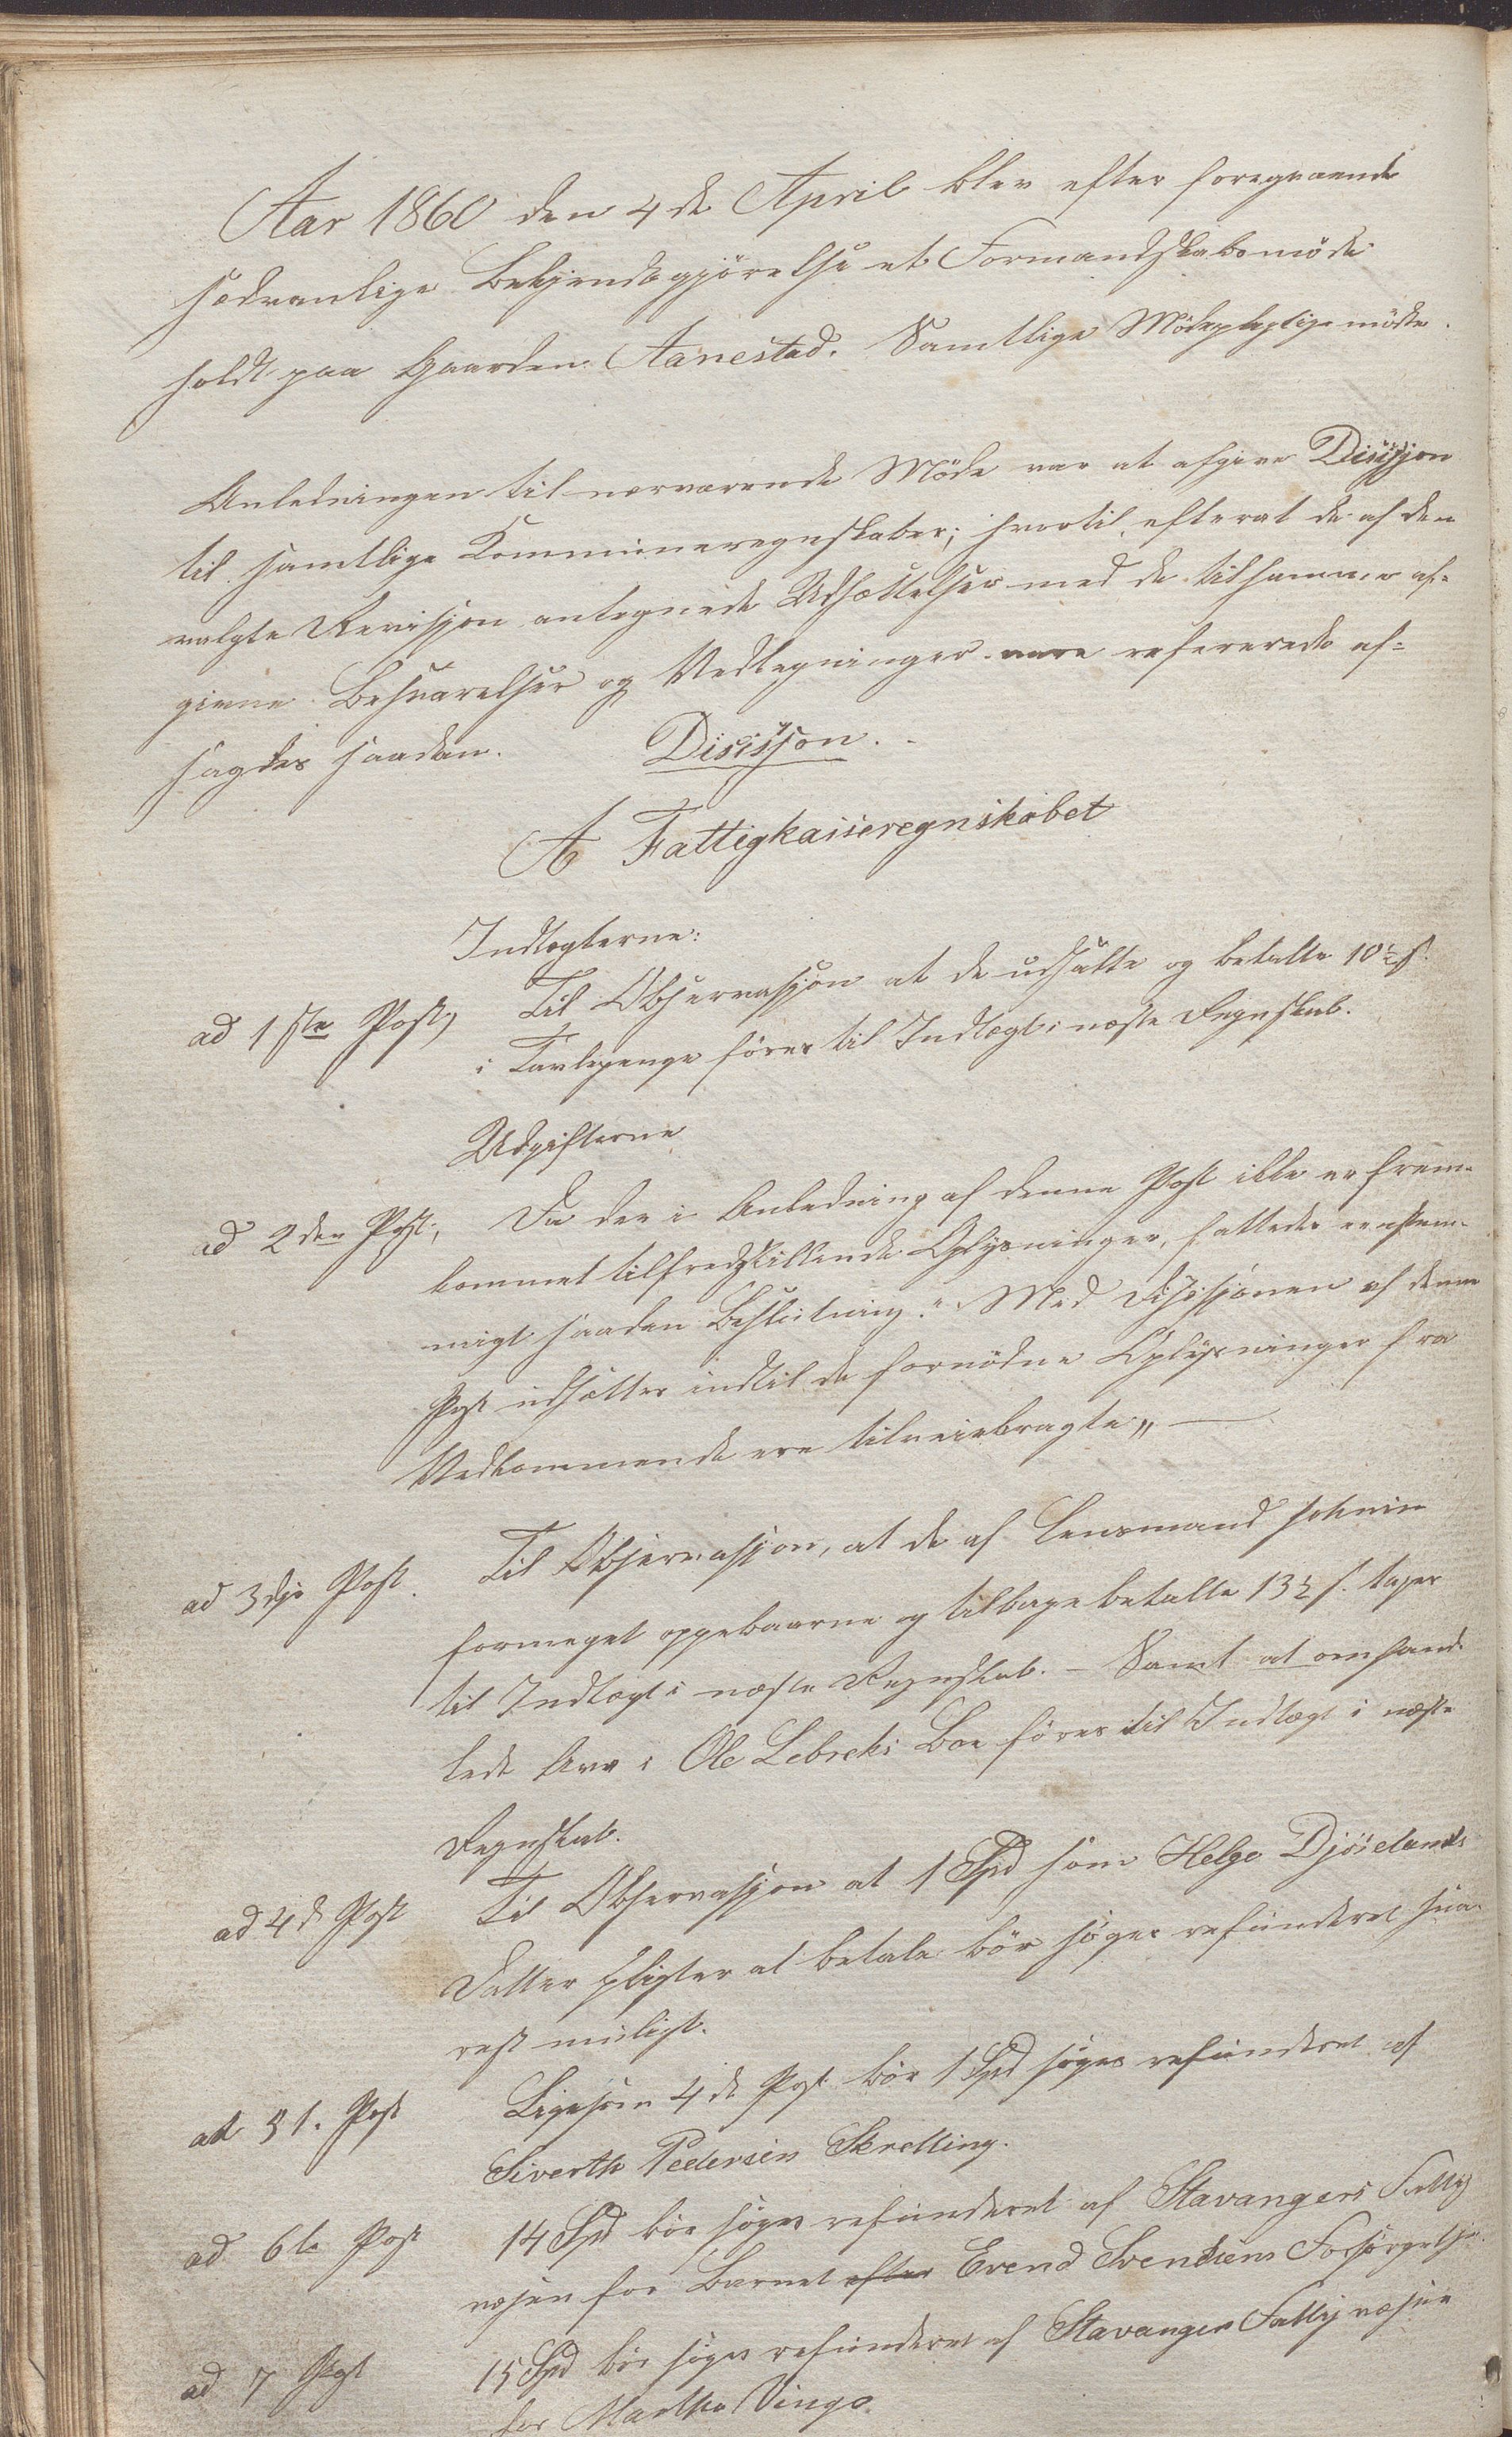 Aar 1860 den 4de April blev efter foregaaende
sædvanlige Bekjendtgjörelse et Formandskabsmöde
holdt paa Gaarden Aanestad. Samtlige Mödepligtige mödte.
Anledningen til nærværende Möde var at afgive Disisjon
til samtlige Kommuneregnskaber; hvortil efterat de af den
valgte Revisjon antegnede Udsættelser med de tilsammen af-
givne Besvarelser og Vedtegninger vare refererede af-
sagdes saadan.
Disisjon.
A Fattigkasseregnskabet
Indtægterne:
ad 1ste Post, Til Observasjon at de udsatte og betalte 10½ s.
i Tavlepenge föres til Indtægt i næste Regnskab.
Udgifterne
ad 2den Post, Da der i Anledning af denne Post ikke er frem-
kommet tilfredsstillende Oplysninger, fattedes eenstem-
migt saadan Beslutning: "Med Disisjonen af denne
Post udsættes indtil de fornödne Oplysninger fra
Vedkommende ere tilveiebragte„
ad 3die Post. Til Observasjon, at de af Lensmand
formeget oppebaarne og tilbagebetalte 13½ s. tages
til Indtægt i næste Regnskab. - Samt at omhand-
lede Arv i Ole Lebreks Bo föres til Indtægt i næste
Regnskab.
ad 4de Post Til Observasjon at 1 Spd som Helge Djöselands
Datter pligter at betale bör söges refunderet sna-
rest muligt.
ad 31. Post Ligesom 4de Post bör 1 Spd söges refunderet af
Siverth Pedersen Skretting.
ad 6te Post 14 Spd bör söges refunderet af Stavangers Fattig
væsen for Barnet efter Evend Svendsens Forsörgelse.
ad 7 Post 15 Spd bör söges refunderet af Stavanger Fattigvæsen
for Marthe Vinge.